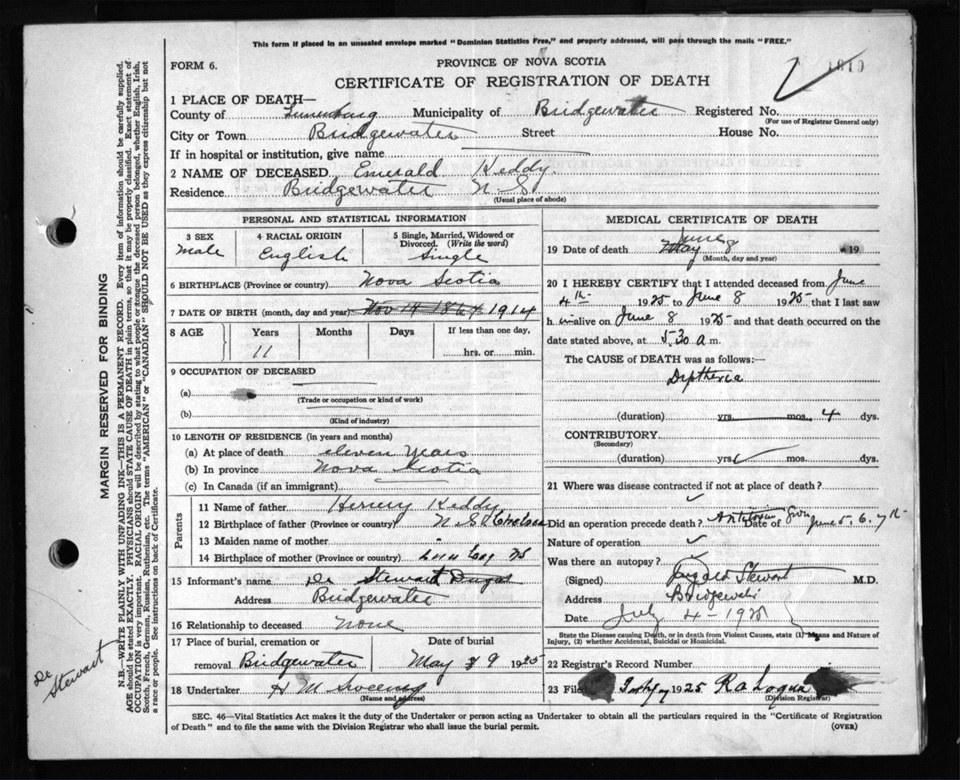 This form if placed in an unsealed envelope marked "Dominion Statistics Free," and properly addressed, will pass through the mails "FREE."
FORM 6.
PROVINCE OF NOVA SCOTIA
CERTIFICATE OF REGISTRATION OF DEATH
1 PLACE OF DEATH—
County of Lunenburg Municipality of Bridgewater Registered No.
(For use of Registrar General only)
City or Town Bridgewater Street House No.
If in hospital or institution, give name
2 NAME OF DECEASED Emerald Keddy.
Residence Bridgewater N S
(Usual place of abode)
PERSONAL AND STATISTICAL INFORMATION
3 SEX
Male
4 RACIAL ORIGIN
English
5 Single, Married, Widowed or Divorced. (Write the word)
Single
6 BIRTHPLACE (Province or country) Nova Scotia
7 DATE OF BIRTH (month, day and year) Nov 14 1914
8 AGE Years Months Days If less than one day,
11 hrs. or min.
9 OCCUPATION OF DECEASED
(a)
(Trade or occupation or kind of work)
(b)
(Kind of industry)
10 LENGTH OF RESIDENCE (in years and months)
(a) At place of death eleven years
(b) In province Nova Scotia
(c) In Canada (if an immigrant)
Parents
11 Name of father Henry Keddy
12 Birthplace of father (Province or country) N S Chelsea
13 Maiden name of mother
14 Birthplace of mother (Province or country) NS
15 Informant's name Dr Stewart Dugal
Address Bridgewater
16 Relationship to deceased None
17 Place of burial, cremation or Date of burial
removal Bridgewater May 9 1925
18 Undertaker H M Sweeny
(Name and address)
MEDICAL CERTIFICATE OF DEATH
June 8
19 Date of death May 19
(Month, day and year)
20 I HEREBY CERTIFY that I attended deceased from June
4th 1925 to June 8 1925 that I last saw
h im alive on June 8 1925 and that death occurred on
date stated above, at 5.30 a m.
The CAUSE of DEATH was as follows:—
Diptheria
(duration) yrs. mos. 4 dys.
CONTRIBUTORY
(Secondary)
(duration) yrs. mos. dys.
21 Where was disease contracted if not at place of death?
Did an operation precede death? Antitoxin Date of given June 5. 6. 7th
Nature of operation
Was there an autopsy?
(Signed) Dugald Stewart M.D.
Address Bridgewater
Date July 4 - 1925
State the Disease causing Death, or in death from Violent Causes, state (1) Means and Nature of
Injury, (2) whether Accidental, Suicidal or Homicidal.
22 Registrar's Record Number
23 Filed July 7 1925 R a Logan
(Division Registrar)
SEC. 46—Vital Statistics Act makes it the duty of the Undertaker or person acting as Undertaker to obtain all the particulars required in the "Certificate of Registration
of Death" and to file the same with the Division Registrar who shall issue the burial permit. (OVER)
MARGIN RESERVED FOR BINDING
N.B.—WRITE PLAINLY WITH UNFADING INK—THIS IS A PERMANENT RECORD. Every item of information should be carefully supplied.
AGE should be stated EXACTLY. PHYSICIANS should STATE CAUSE OF DEATH in plain terms, so that it may be properly classified. Exact statement of
OCCUPATION is very important. RACIAL ORIGIN will be described by stating to what people or tongue the deceased person belonged, whether English, Irish,
Scotch, French, German, Russian, Ruthenian, etc. The terms "AMERICAN" or "CANADIAN" SHOULD NOT BE USED as they express citizenship but not
a race or people. See instructions on back of Certificate.
Dr Stewart